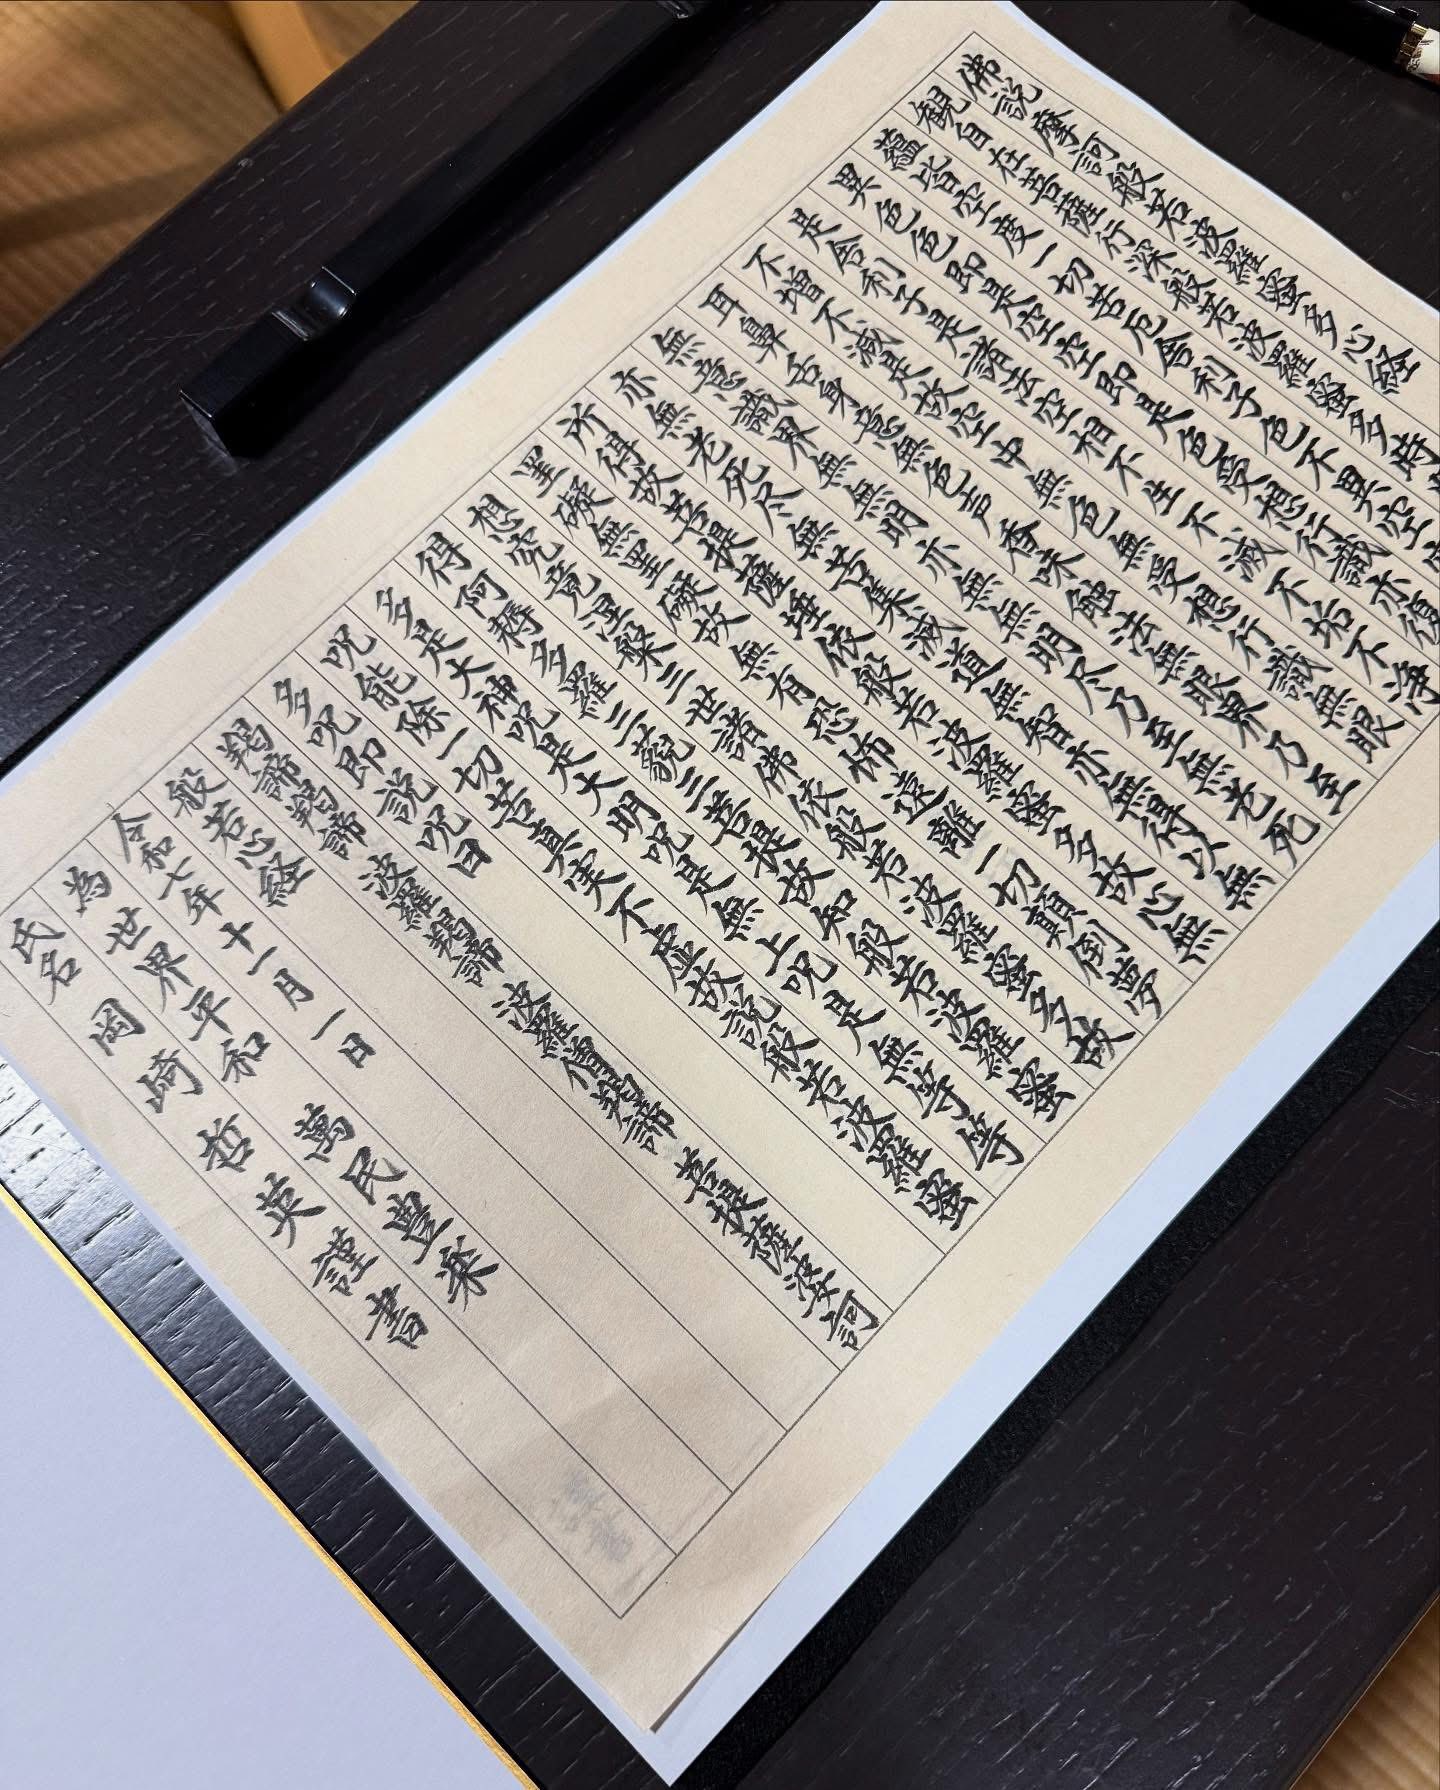 佛説摩訶般若波羅蜜多心経
観自在菩薩行深般若波羅蜜多時
蘊皆空度一切苦厄舎利子色不異空
異色色即是空空即是色受想行識亦復
是舎利子是諸法空相不生不滅不垢不浄
不増不減是故空中無色無受想行識無眼
耳鼻舌身意無色声香味触法無眼界乃至
無意識界無無明亦無無明尽乃至無老死
亦無老死尽無苦集滅道無智亦無得以無
所得故菩提薩埵依般若波羅蜜多故心無
罣礙無罣礙故無有恐怖遠離一切顛倒夢
想究竟涅槃三世諸佛依般若波羅蜜多故
得阿耨多羅三藐三菩提故知般若波羅蜜
多是大神呪是大明呪是無上呪是無等等
呪能除一切苦真実不虚故説般若波羅蜜
多呪即説呪曰
羯諦羯諦 波羅羯諦 波羅僧羯諦 菩提薩婆訶
般若心経
令和七年十一月一日
為世界平和 萬民豊楽
氏名 岡崎哲英謹書